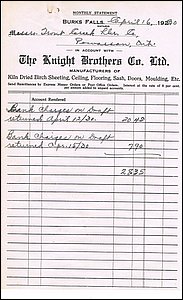 MONTHLY STATEMENT
BURKS FALLS, April 16, 1930
Messrs. Trout Creek Lbr. Co.
Powassan, Ont.
IN ACCOUNT WITH
The Knight Brothers Co. Ltd.
MANUFACTURERS OF
Kiln Dried Birch Sheeting, Ceiling, Flooring, Sash, Doors, Moulding, Etc.
Send Remittances by Express Money Orders or Post Office Orders. Interest at the rate of 8 per cent. per annum added to unpaid accounts.
Account Rendered
Bank Charges on Draft
returned April 12/30. 20 45
Bank Charges on Draft
returned Apr. 15/30 7 90
28 35